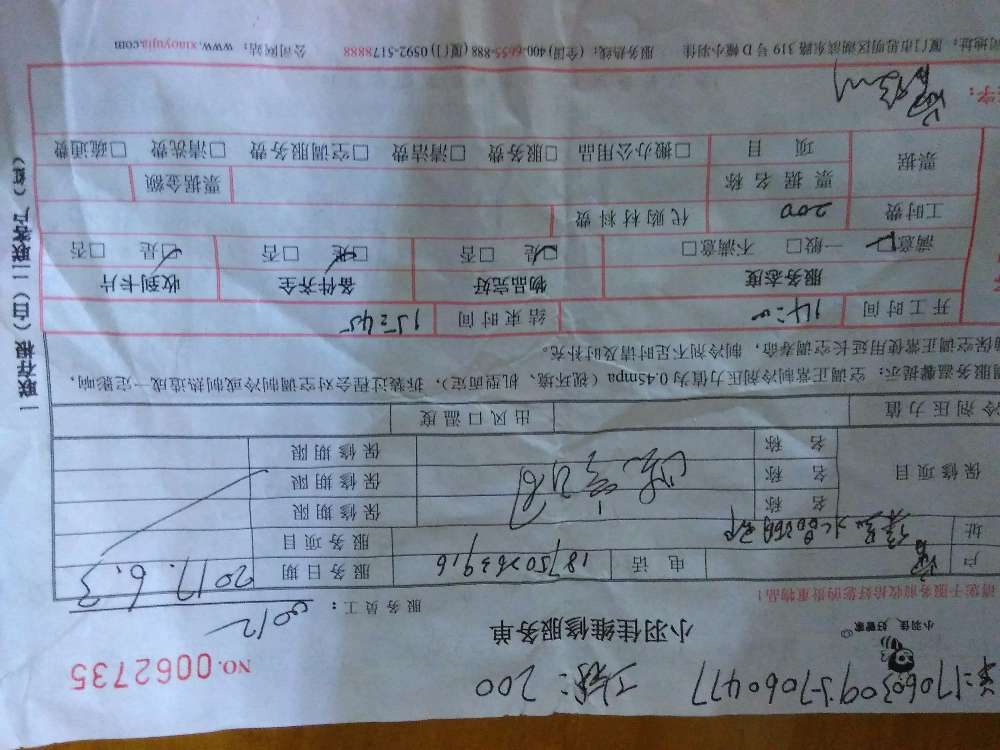 NO.0062735
小羽佳 好管家
小羽佳维修服务单
200
请您于服务前收拾好您的贵重物品！
服务员工：
6012
户
电话
18750263916
服务日期
2017.6.3
址
服务项目
保修项目
名称
保修期限
名称
保修期限
名称
保修期限
冷剂压力值
出风口温度
服务温馨提示：空调正常制冷剂压力值为0.45mpa（视环境、机型而定），拆装过程会对空调制冷或制热造成一定影响，
保空调正常使用延长空调寿命，制冷剂不足时请及时补充。
开工时间
14:00
结束时间
15:45
服务态度
物品完好
备件齐全
收到卡片
满意□ 一般□ 不满意□
是□ 否□
是□ 否□
是□ 否□
工时费
200
代购材料费
票据
票据名称
票据金额
项目
□搬办公用品 □服务费 □清洁费 □空调服务费 □清洗费 □疏通费
字：
司地址：厦门市思明区湖滨东路319号D幢小羽佳 服务热线：(全国)400-6655-888 (厦门)0592-5178888 公司网站：www.xiaoyujia.com
一联存根（白）二联客户（红）